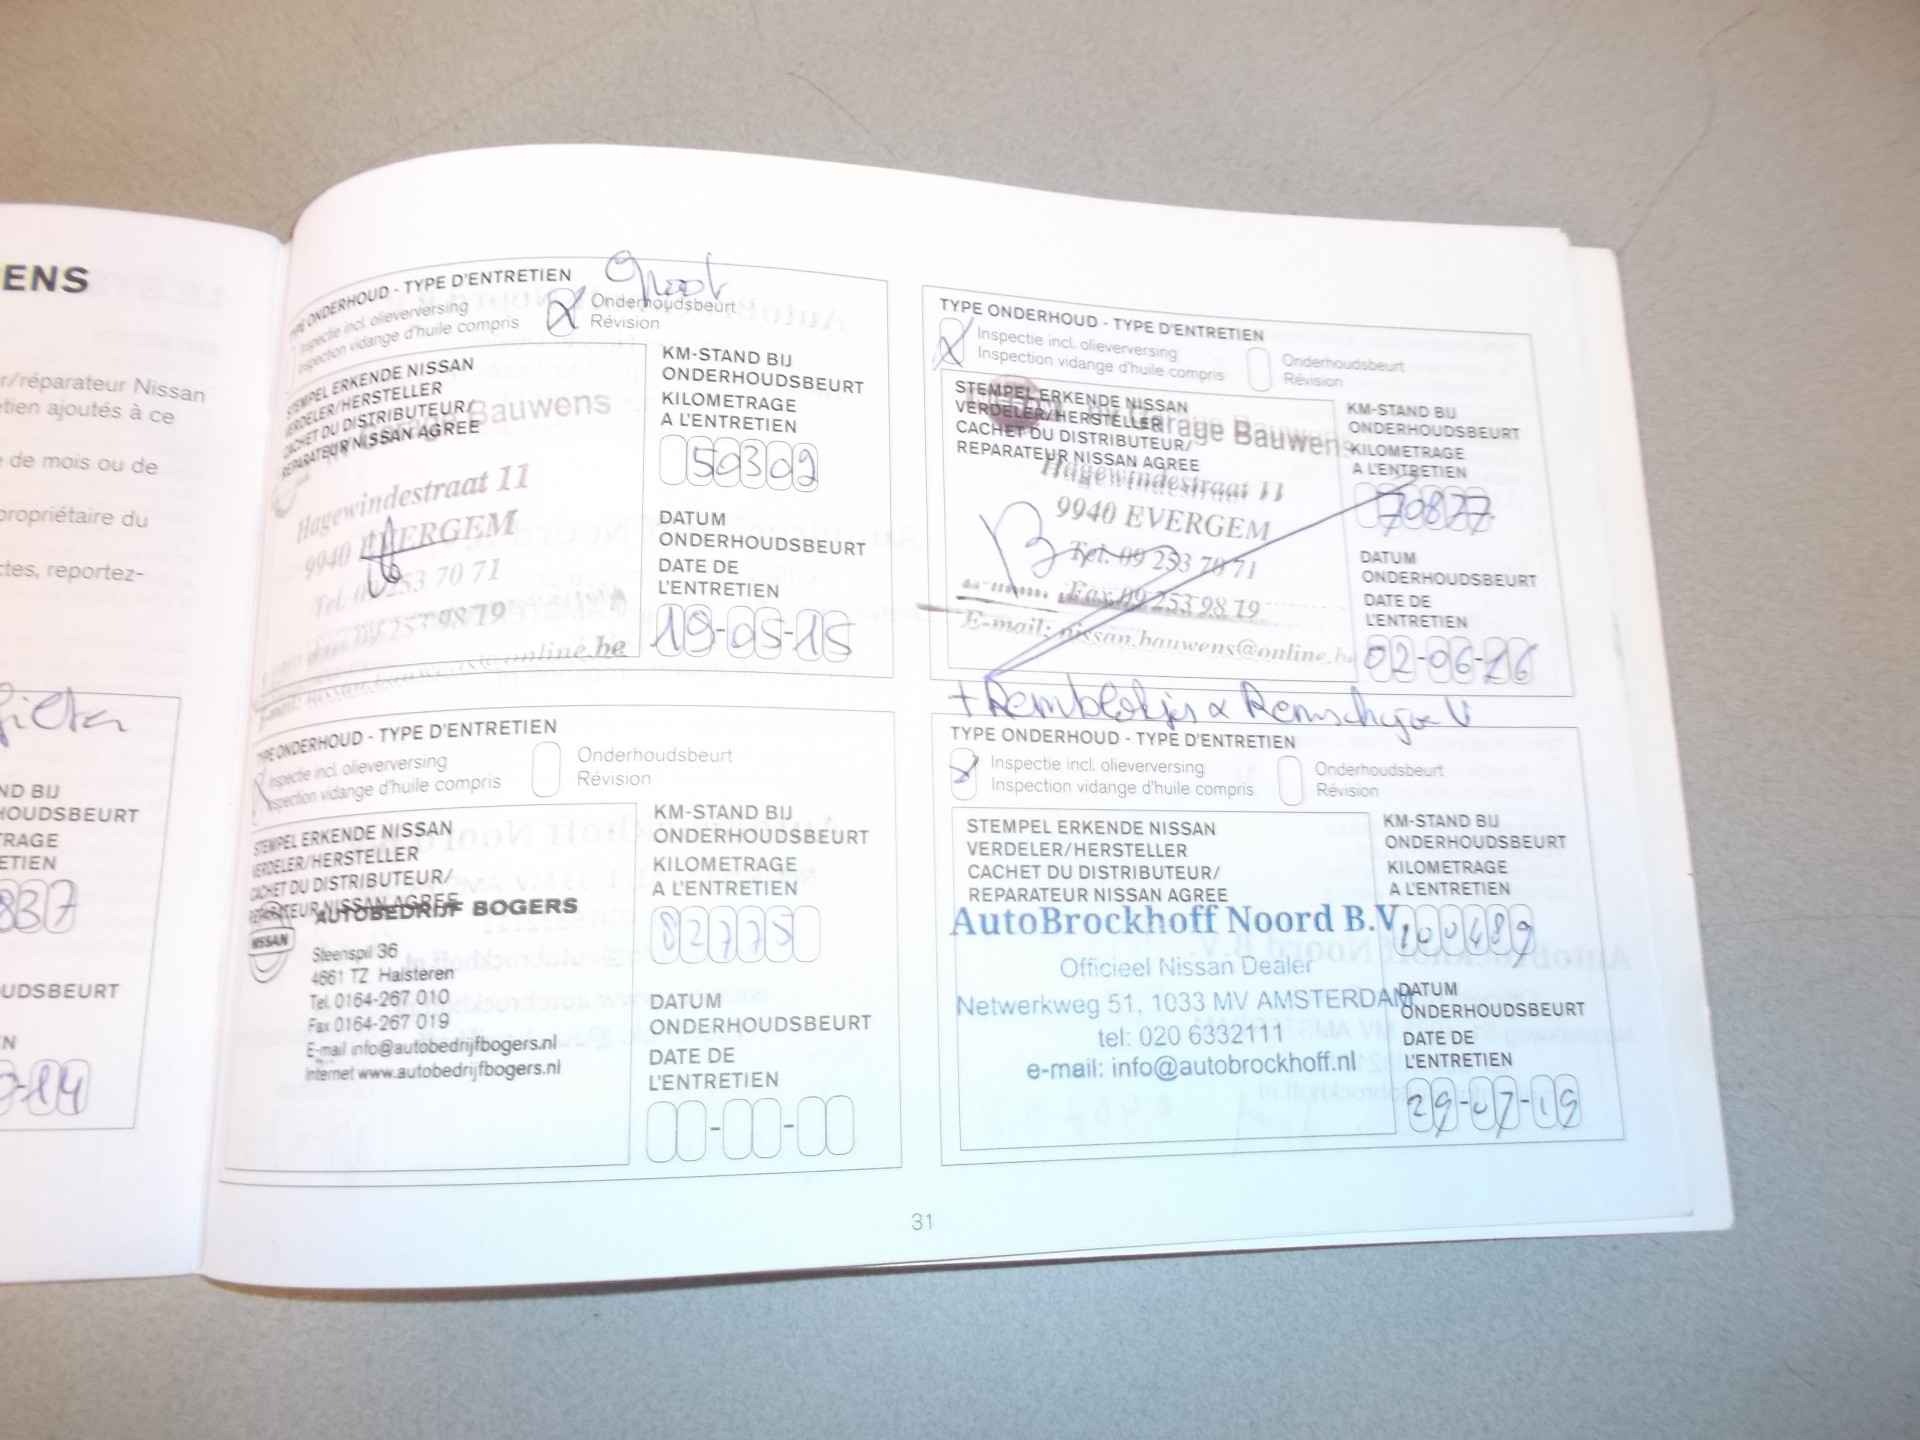 ENS
r/réparateur Nissan
tien ajoutés à ce
e de mois ou de
propriétaire du
ctes, reportez-
ND BIJ
HOUDSBEURT
TRAGE
ETIEN
837
UDSBEURT
N
-14
Groot
TYPE ONDERHOUD - TYPE D'ENTRETIEN
Inspectie incl. olieverversing
Inspection vidange d'huile compris
Onderhoudsbeurt
Révision
STEMPEL ERKENDE NISSAN
VERDELER/HERSTELLER
CACHET DU DISTRIBUTEUR/
REPARATEUR NISSAN AGREE
Garage Bauwens
Hagewindestraat 11
9940 EVERGEM
Tel. 09 253 70 71
253 98 19
online.be
KM-STAND BIJ
ONDERHOUDSBEURT
KILOMETRAGE
A L'ENTRETIEN
50309
DATUM
ONDERHOUDSBEURT
DATE DE
L'ENTRETIEN
19-05-15
TYPE ONDERHOUD - TYPE D'ENTRETIEN
Inspectie incl. olieverversing
Inspection vidange d'huile compris
Onderhoudsbeurt
Révision
STEMPEL ERKENDE NISSAN
VERDELER/HERSTELLER
CACHET DU DISTRIBUTEUR/
REPARATEUR NISSAN AGREE
Garage Bauwens
Hagewindestraat 11
9940 EVERGEM
Tel. 09 253 70 71
Fax 09 253 98 19
E-mail: nissan.bauwens@online.be
KM-STAND BIJ
ONDERHOUDSBEURT
KILOMETRAGE
A L'ENTRETIEN
70877
DATUM
ONDERHOUDSBEURT
DATE DE
L'ENTRETIEN
02-06-16
+ Remblokjes & Remschijven V
TYPE ONDERHOUD - TYPE D'ENTRETIEN
Inspectie incl. olieverversing
Inspection vidange d'huile compris
Onderhoudsbeurt
Révision
STEMPEL ERKENDE NISSAN
VERDELER/HERSTELLER
CACHET DU DISTRIBUTEUR/
REPARATEUR NISSAN AGREE
AUTOBEDRIJF BOGERS
NISSAN
Steenspil 36
4661 TZ Halsteren
Tel. 0164-267 010
Fax 0164-267 019
E-mail info@autobedrijfbogers.nl
Internet www.autobedrijfbogers.nl
KM-STAND BIJ
ONDERHOUDSBEURT
KILOMETRAGE
A L'ENTRETIEN
82775
DATUM
ONDERHOUDSBEURT
DATE DE
L'ENTRETIEN
TYPE ONDERHOUD - TYPE D'ENTRETIEN
Inspectie incl. olieverversing
Inspection vidange d'huile compris
Onderhoudsbeurt
Révision
STEMPEL ERKENDE NISSAN
VERDELER/HERSTELLER
CACHET DU DISTRIBUTEUR/
REPARATEUR NISSAN AGREE
AutoBrockhoff Noord B.V.
Officieel Nissan Dealer
Netwerkweg 51, 1033 MV AMSTERDAM
tel: 020 6332111
e-mail: info@autobrockhoff.nl
KM-STAND BIJ
ONDERHOUDSBEURT
KILOMETRAGE
A L'ENTRETIEN
100489
DATUM
ONDERHOUDSBEURT
DATE DE
L'ENTRETIEN
29-07-19
31